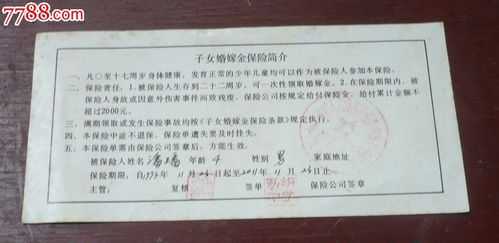 7788.com
子女婚嫁金保险简介
一、凡〇至十七周岁身体健康，发育正常的少年儿童均可以作为被保险人参加本保险。
二、保险责任：1.被保险人生存到二十二周岁，可一次性领取婚嫁金。2.在保险期限内，被
保险人身故或因意外伤害事件而致残废，保险公司按规定给付保险金，给付累计金额不
超过2000元。
三、满期领取或发生保险事故均按《子女婚嫁金保险条款》规定执行。
四、本保险中途不退保，保险单遗失要及时挂失。
五、本保险单需由保险公司签章后，方能生效。
被保险人姓名 潘 年龄 4 性别 男 家庭地址
保险期限，自1993年 11月26日起至2011年 11月25日止
主管： 复核 签单 保险公司签章